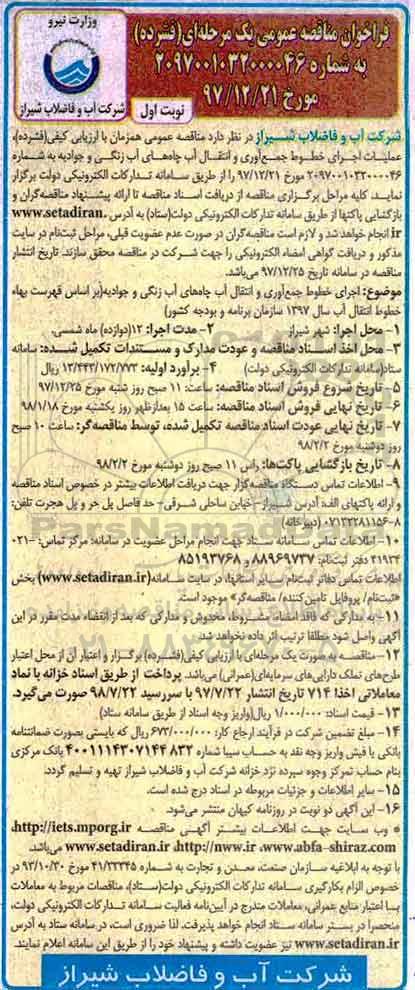 فراخوان مناقصه عمومی یک مرحله‌ای(فشرده)
به شماره ۲۰۹۷۰۰۱۰۳۲۰۰۰۰۴۶
مورخ ۹۷/۱۲/۲۱
نوبت اول
وزارت نیرو
شرکت آب و فاضلاب شیراز
شرکت آب و فاضلاب شیراز در نظر دارد مناقصه عمومی همزمان با ارزیابی کیفی(فشرده)،
عملیات اجرای خطوط جمع‌آوری و انتقال آب چاه‌های آب زنگی و جوادیه به شماره
۲۰۹۷۰۰۱۰۳۲۰۰۰۰۴۶ مورخ ۹۷/۱۲/۲۱ را از طریق سامانه تدارکات الکترونیکی دولت برگزار
نماید. کلیه مراحل برگزاری مناقصه از دریافت اسناد مناقصه تا ارائه پیشنهاد مناقصه‌گران و
بازگشایی پاکتها از طریق سامانه تدارکات الکترونیکی دولت(ستاد) به آدرس www.setadiran.
ir انجام خواهد شد و لازم است مناقصه‌گران در صورت عدم عضویت قبلی، مراحل ثبت‌نام در سایت
مذکور و دریافت گواهی امضاء الکترونیکی را جهت شرکت در مناقصه محقق سازند. تاریخ انتشار
مناقصه در سامانه تاریخ ۹۷/۱۲/۲۵ می‌باشد.
موضوع: اجرای خطوط جمع‌آوری و انتقال آب چاه‌های آب زنگی و جوادیه(بر اساس فهرست بهاء
خطوط انتقال آب سال ۱۳۹۷ سازمان برنامه و بودجه کشور)
۱- محل اجرا: شهر شیراز ۲- مدت اجرا: ۱۲(دوازده) ماه شمسی.
۳- محل اخذ اسناد مناقصه و عودت مدارک و مستندات تکمیل شده: سامانه
ستاد(سامانه تدارکات الکترونیکی دولت) ۴- برآورد اولیه: ۱۳/۴۴۳/۱۷۲/۷۷۳ ریال
۵- تاریخ شروع فروش اسناد مناقصه: ساعت ۱۱ صبح روز شنبه مورخ ۹۷/۱۲/۲۵
۶- تاریخ نهایی فروش اسناد مناقصه: ساعت ۱۵ بعدازظهر روز یکشنبه مورخ ۹۸/۱/۱۸
۷- تاریخ نهایی عودت اسناد مناقصه تکمیل شده، توسط مناقصه‌گر: ساعت ۱۰ صبح
روز دوشنبه مورخ ۹۸/۲/۲
۸- تاریخ بازگشایی پاکت‌ها: راس ۱۱ صبح روز دوشنبه مورخ ۹۸/۲/۲
۹- اطلاعات تماس دستگاه مناقصه‌گزار جهت دریافت اطلاعات بیشتر در خصوص اسناد مناقصه
و ارائه پاکتهای الف: آدرس شیراز -خیابان ساحلی شرقی- حد فاصل پل حر و پل هجرت تلفن:
۸-۰۷۱۳۲۲۸۱۱۵۶ (دبیرخانه)
۱۰- اطلاعات تماس سامانه ستاد جهت انجام مراحل عضویت در سامانه: مرکز تماس: ۰۲۱-
۴۱۹۳۴ دفتر ثبت‌نام: ۸۸۹۶۹۷۳۷ و ۸۵۱۹۳۷۶۸
اطلاعات تماس دفاتر ثبت‌نام سایر استانها، در سایت سامانه(www.setadiran.ir) بخش
"ثبت‌نام/ پروفایل تامین‌کننده/ مناقصه‌گر» موجود است.
۱۱- به مدارکی که فاقد امضاء، مشروط، مخدوش و مدارکی که بعد از انقضاء مدت مقرر در این
آگهی واصل شود مطلقا ترتیب اثر داده نخواهد شد.
۱۲- مناقصه به صورت یک مرحله‌ای با ارزیابی کیفی(فشرده) برگزار و اعتبار آن از محل اعتبار
طرح‌های تملک دارایی‌های سرمایه‌ای(عمرانی) می‌باشد. پرداخت از طریق اسناد خزانه با نماد
معاملاتی اخذا ۷۱۴ تاریخ انتشار ۹۷/۷/۲۲ با سررسید ۹۸/۷/۲۲ صورت می‌گیرد.
۱۳- قیمت اسناد: ۱/۰۰۰/۰۰۰ ریال(واریز وجه اسناد از طریق سامانه ستاد)
۱۴- مبلغ تضمین شرکت در فرآیند ارجاع کار: ۶۷۳/۰۰۰/۰۰۰ ریال که بایستی بصورت ضمانتنامه
بانکی یا فیش واریز وجه نقد به حساب سیبا شماره ۴۰۰۱۱۱۴۳۰۷۱۴۴۸۳۲ بانک مرکزی
بنام حساب تمرکز وجوه سپرده نزد خزانه شرکت آب و فاضلاب شیراز تهیه و تسلیم گردد.
۱۵- سایر اطلاعات و جزئیات مربوطه در اسناد درج شده است.
۱۶- این آگهی دو نوبت در روزنامه کیهان منتشر می‌شود.
وب سایت جهت اطلاعات بیشتر آگهی مناقصه http://iets.mporg.ir،
www.abfa-shiraz.com، http://nww.ir، www.setadiran.ir می‌باشد.
با توجه به ابلاغیه سازمان صنعت، معدن و تجارت به شماره ۴۱/۲۳۳۴۵ مورخ ۹۳/۱۰/۳۰ در
خصوص الزام بکارگیری سامانه تدارکات الکترونیکی دولت(ستاد)، مناقصات مربوط به معاملات
بسا اعتبار منابع عمرانی، معاملات مندرج در آیین‌نامه فعالیت سامانه تدارکات الکترونیکی دولت،
منحصراً در بستر سامانه ستاد انجام خواهد پذیرفت. لذا ضروری است، در سامانه ستاد به آدرس
www.setadiran.ir نیز عضویت داشته و پیشنهاد خود را از طریق این سامانه اعلام نمایند.
شرکت آب و فاضلاب شیراز